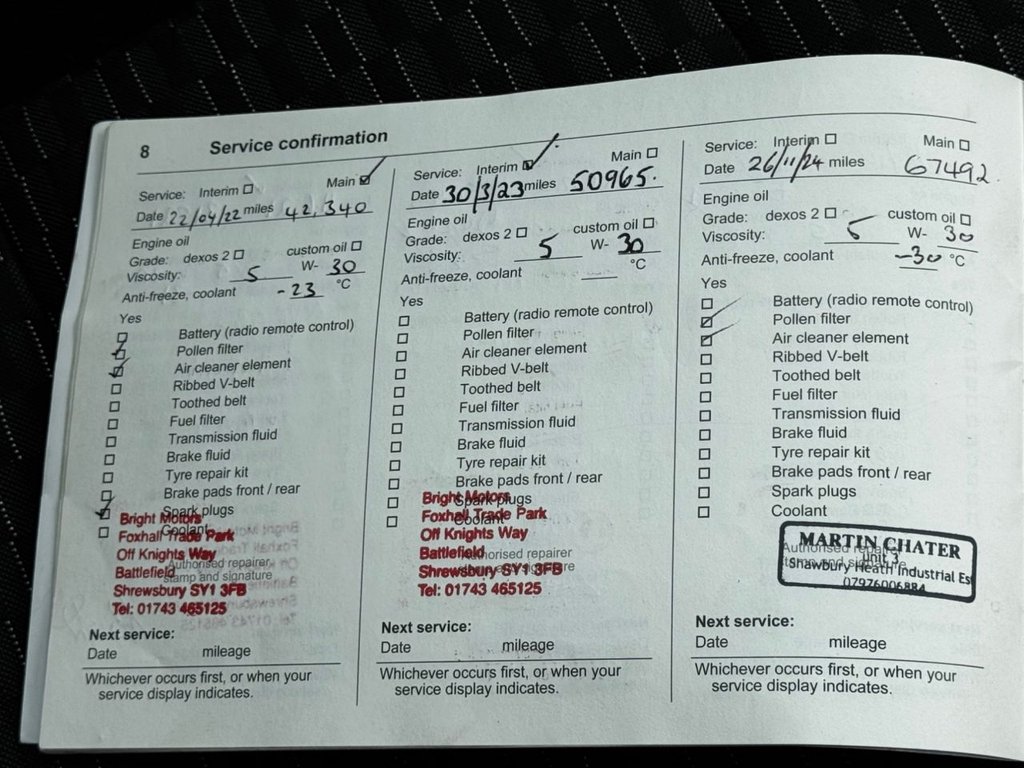 8 Service confirmation
Service: Interim Main
Date 22/04/22 miles 42,340
Engine oil
Grade: dexos 2 custom oil
Viscosity: 5 W- 30
Anti-freeze, coolant -23 °C
Yes
Battery (radio remote control)
Pollen filter
Air cleaner element
Ribbed V-belt
Toothed belt
Fuel filter
Transmission fluid
Brake fluid
Tyre repair kit
Brake pads front / rear
Spark plugs
Coolant
Bright Motors
Foxhall Trade Park
Off Knights Way
Battlefield
Shrewsbury SY1 3FB
Tel: 01743 465125
Authorised repairer
stamp and signature
Next service:
Date mileage
Whichever occurs first, or when your
service display indicates.
Service: Interim Main
Date 30/3/23 miles 50965.
Engine oil
Grade: dexos 2 custom oil
Viscosity: 5 W- 30
Anti-freeze, coolant °C
Yes
Battery (radio remote control)
Pollen filter
Air cleaner element
Ribbed V-belt
Toothed belt
Fuel filter
Transmission fluid
Brake fluid
Tyre repair kit
Brake pads front / rear
Spark plugs
Coolant
Bright Motors
Foxhall Trade Park
Off Knights Way
Battlefield
Shrewsbury SY1 3FB
Tel: 01743 465125
Authorised repairer
Next service:
Date mileage
Whichever occurs first, or when your
service display indicates.
Service: Interim Main
Date 26/11/24 miles 67492
Engine oil
Grade: dexos 2 custom oil
Viscosity: 5 W- 30
Anti-freeze, coolant -30 °C
Yes
Battery (radio remote control)
Pollen filter
Air cleaner element
Ribbed V-belt
Toothed belt
Fuel filter
Transmission fluid
Brake fluid
Tyre repair kit
Brake pads front / rear
Spark plugs
Coolant
MARTIN CHATER
Unit 3
Shawbury Heath Industrial Es
07976006884
Next service:
Date mileage
Whichever occurs first, or when your
service display indicates.